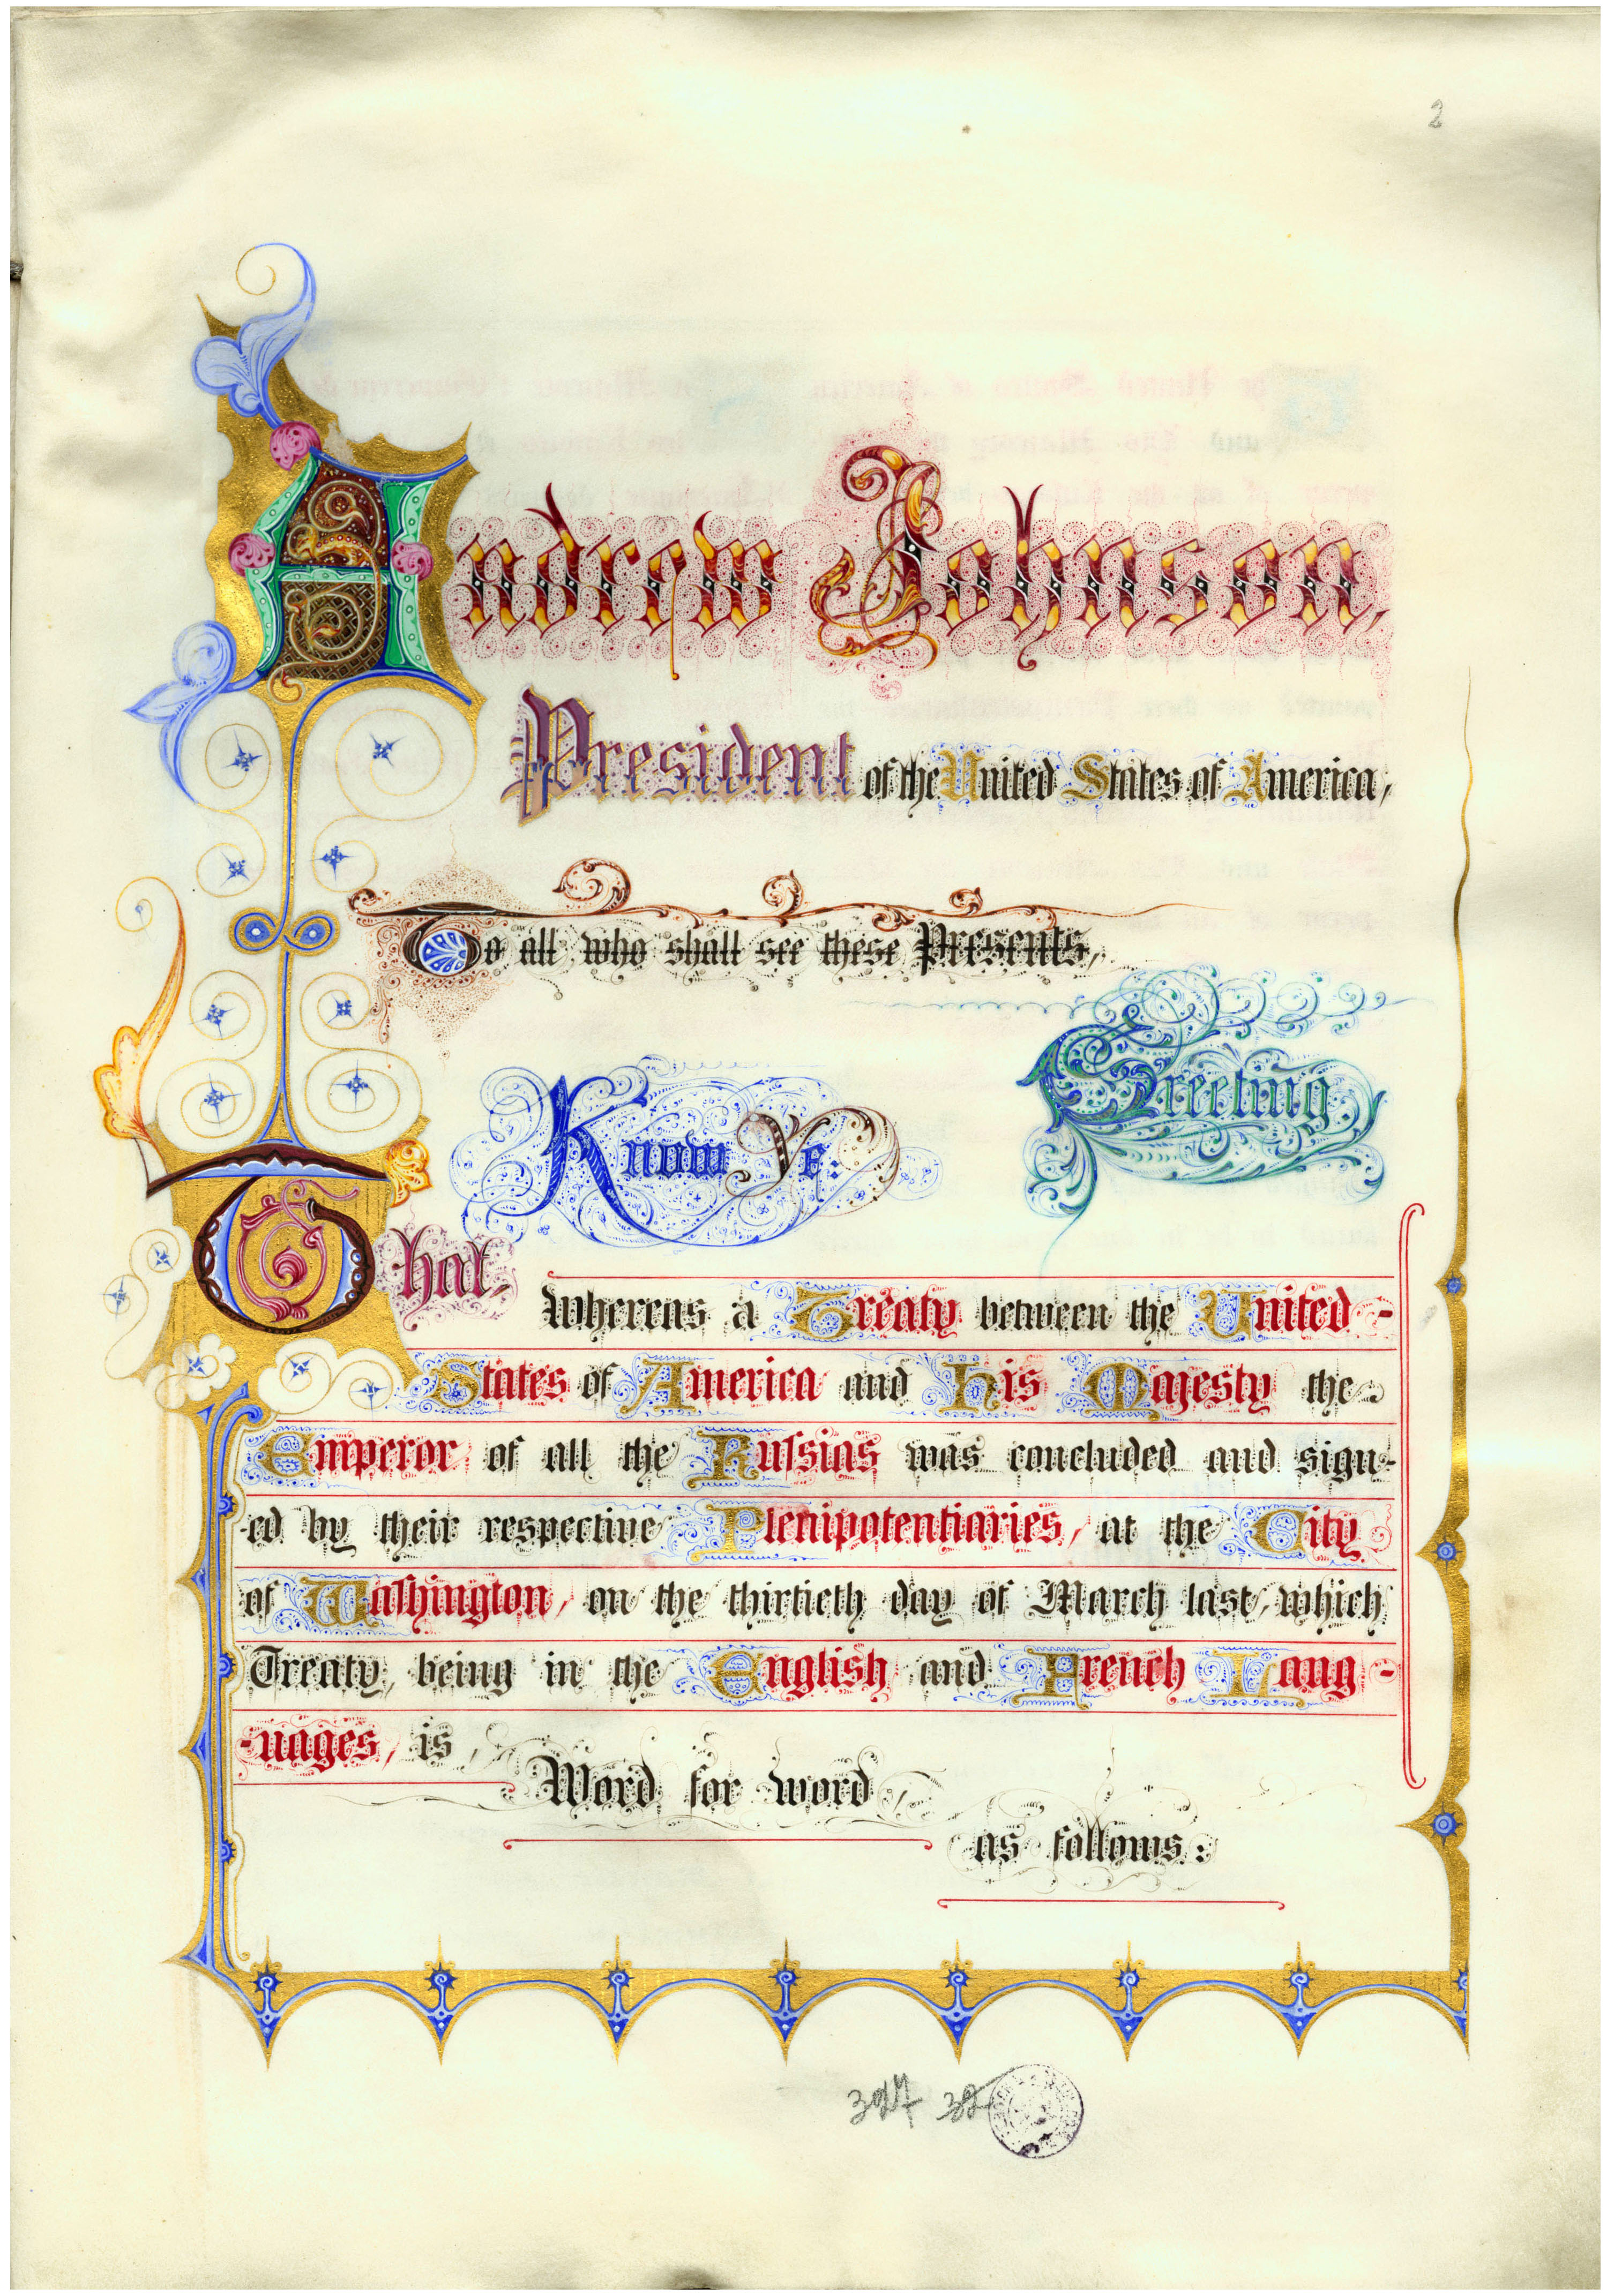 2
Andrew Johnson,
President of the United States of America,
To all who shall see these Presents,
Greeting
Know Ye:
That,
Whereas a Treaty between the United-
States of America and His Majesty the
Emperor of all the Russias was concluded and sign-
ed by their respective Plenipotentiaries, at the City
of Washington, on the thirtieth day of March last, which
Treaty, being in the English and French Lang-
-uages, is,
Word for word
as follows:
327 32